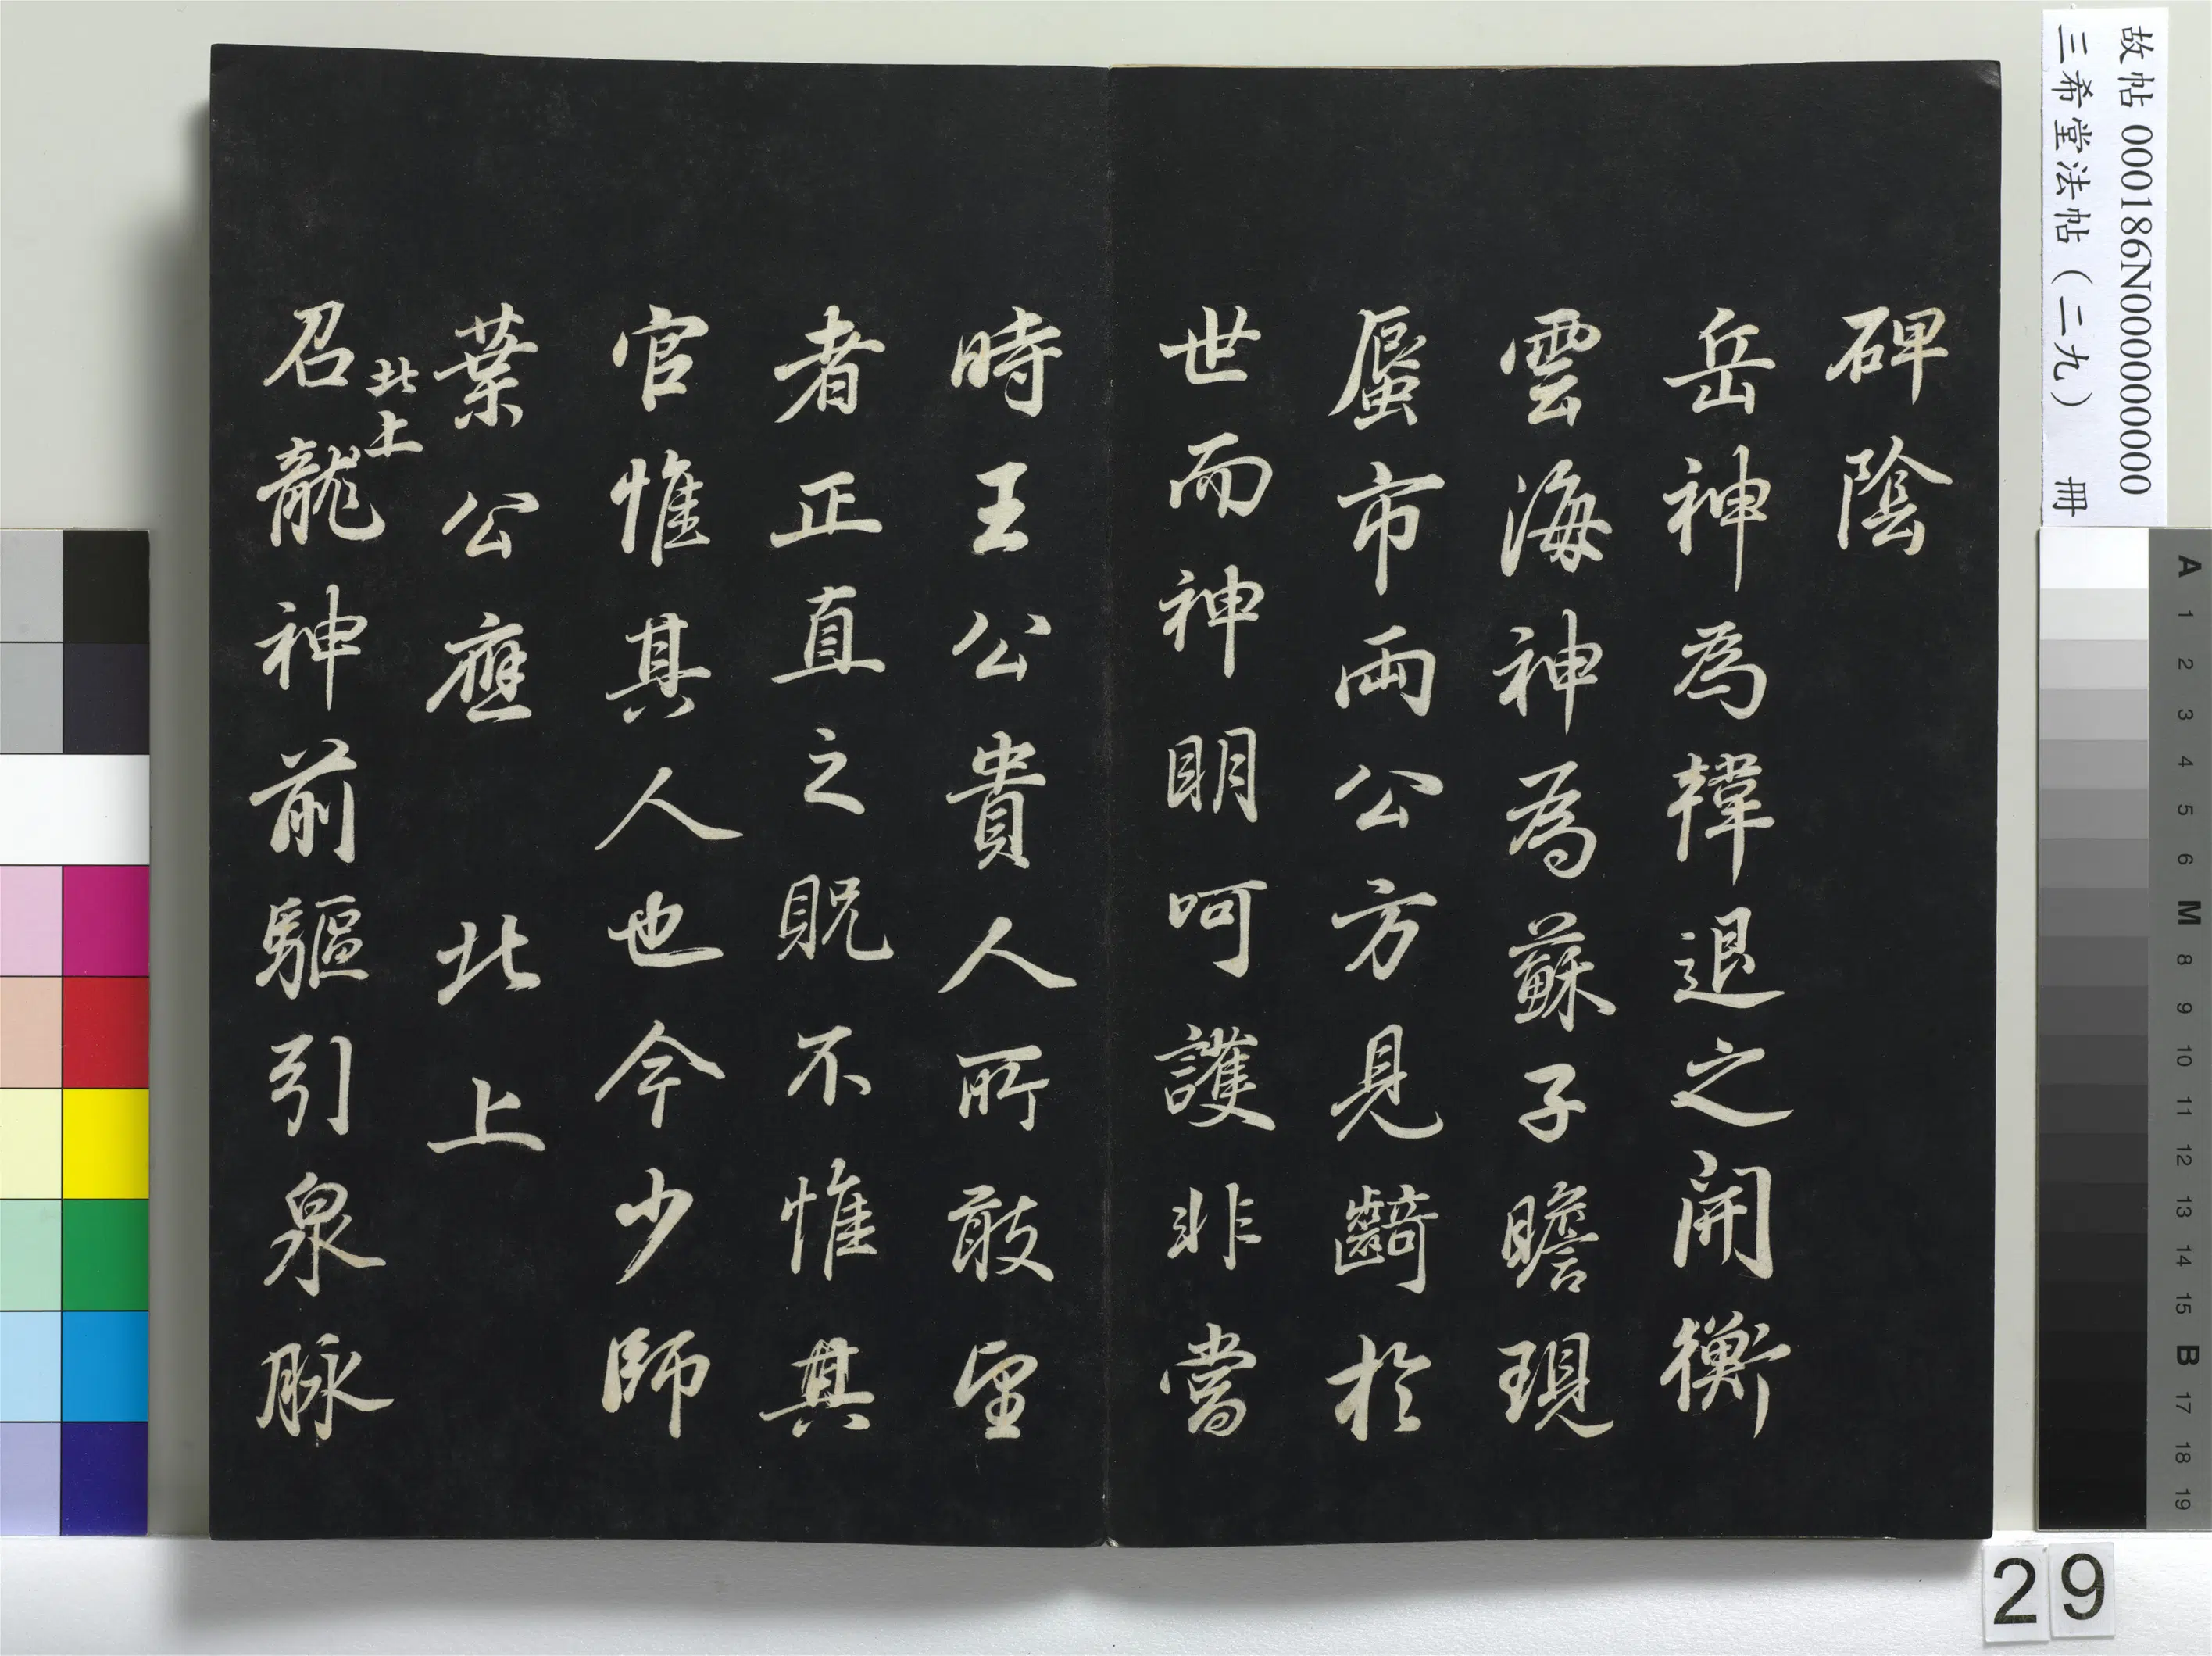 故帖 000186N000000000
三希堂法帖（二九） 冊
碑陰
岳神為韓退之開衡
雲海神為蘇子瞻現
蜃市兩公方見齮於
世而神明呵護非當
時王公貴人所敢望
者正直之貺不惟其
官惟其人也今少師
葉公應 北上
北上
召龍神前驅引泉脉
A 1 2 3 4 5 6 M 8 9 10 11 12 13 14 15 B 17 18 19
29